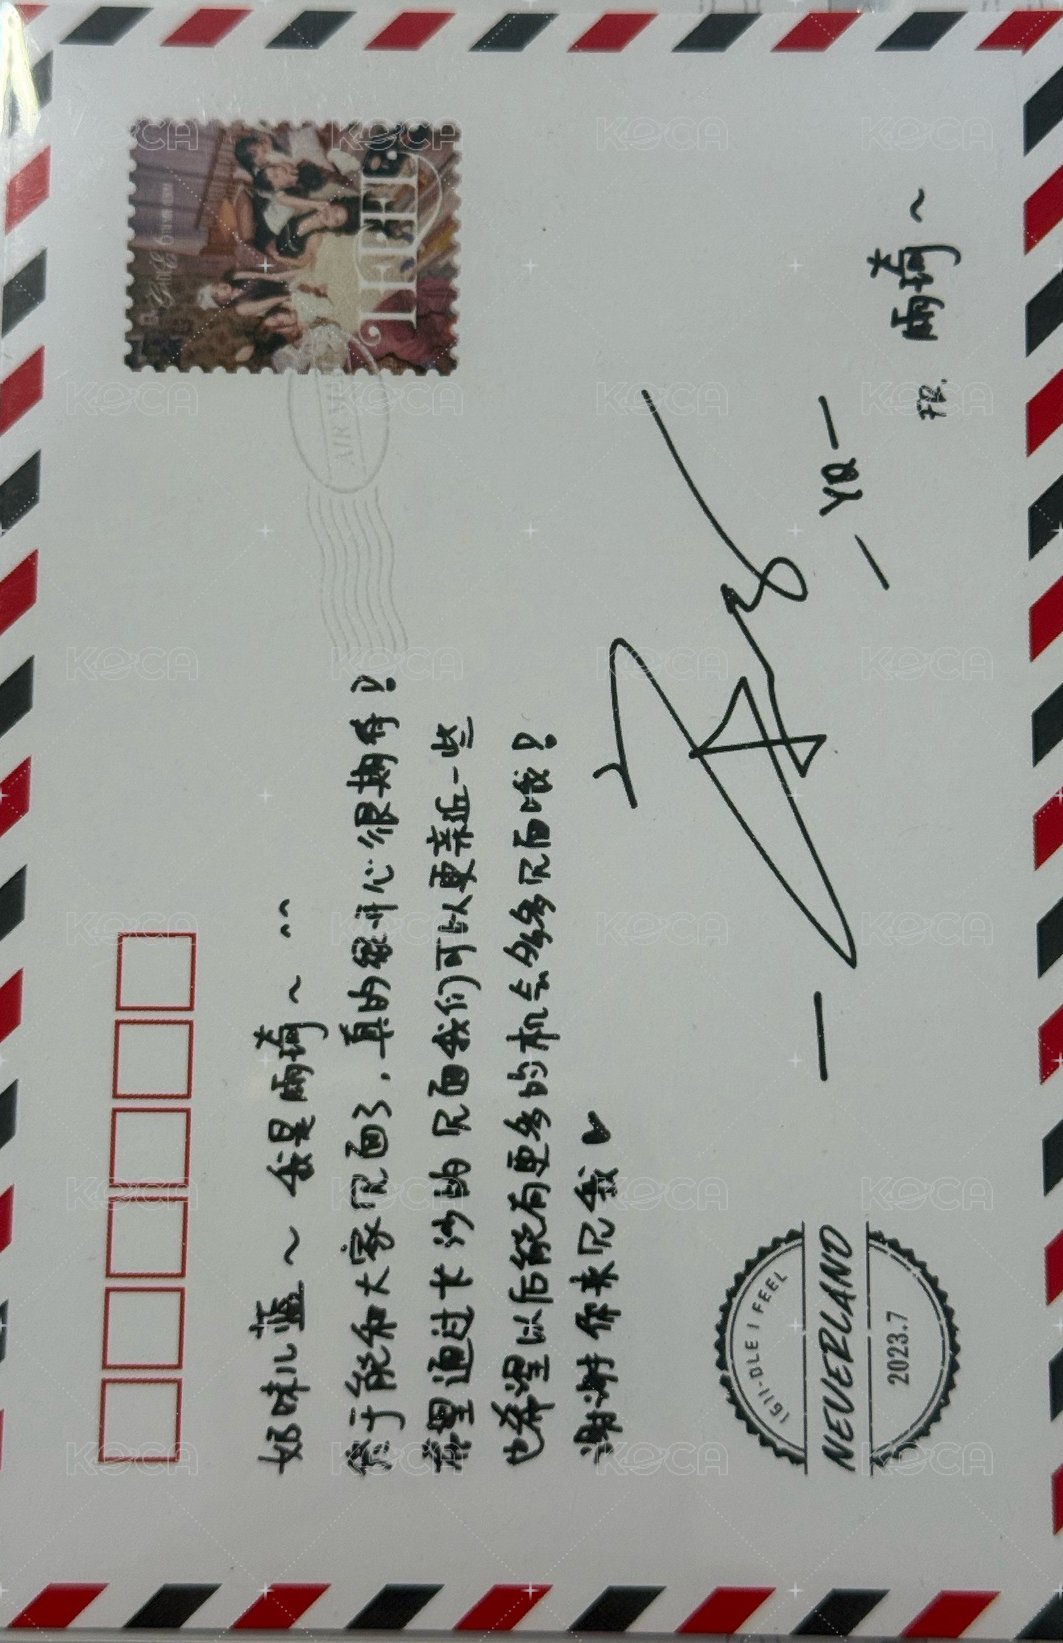 HEAT
AIR MAIL
奶味儿蓝～ 我是雨琦～ ^^
终于能和大家见面了，真的很开心很期待！
希望通过卡沙的见面我们可以更亲近一些
也希望以后能有更多的机会多多见面哦！
谢谢你来见我♥
— YQ —
FR. 雨琦～
(G)I-DLE I FEEL
NEVERLAND
2023.7
KOCA